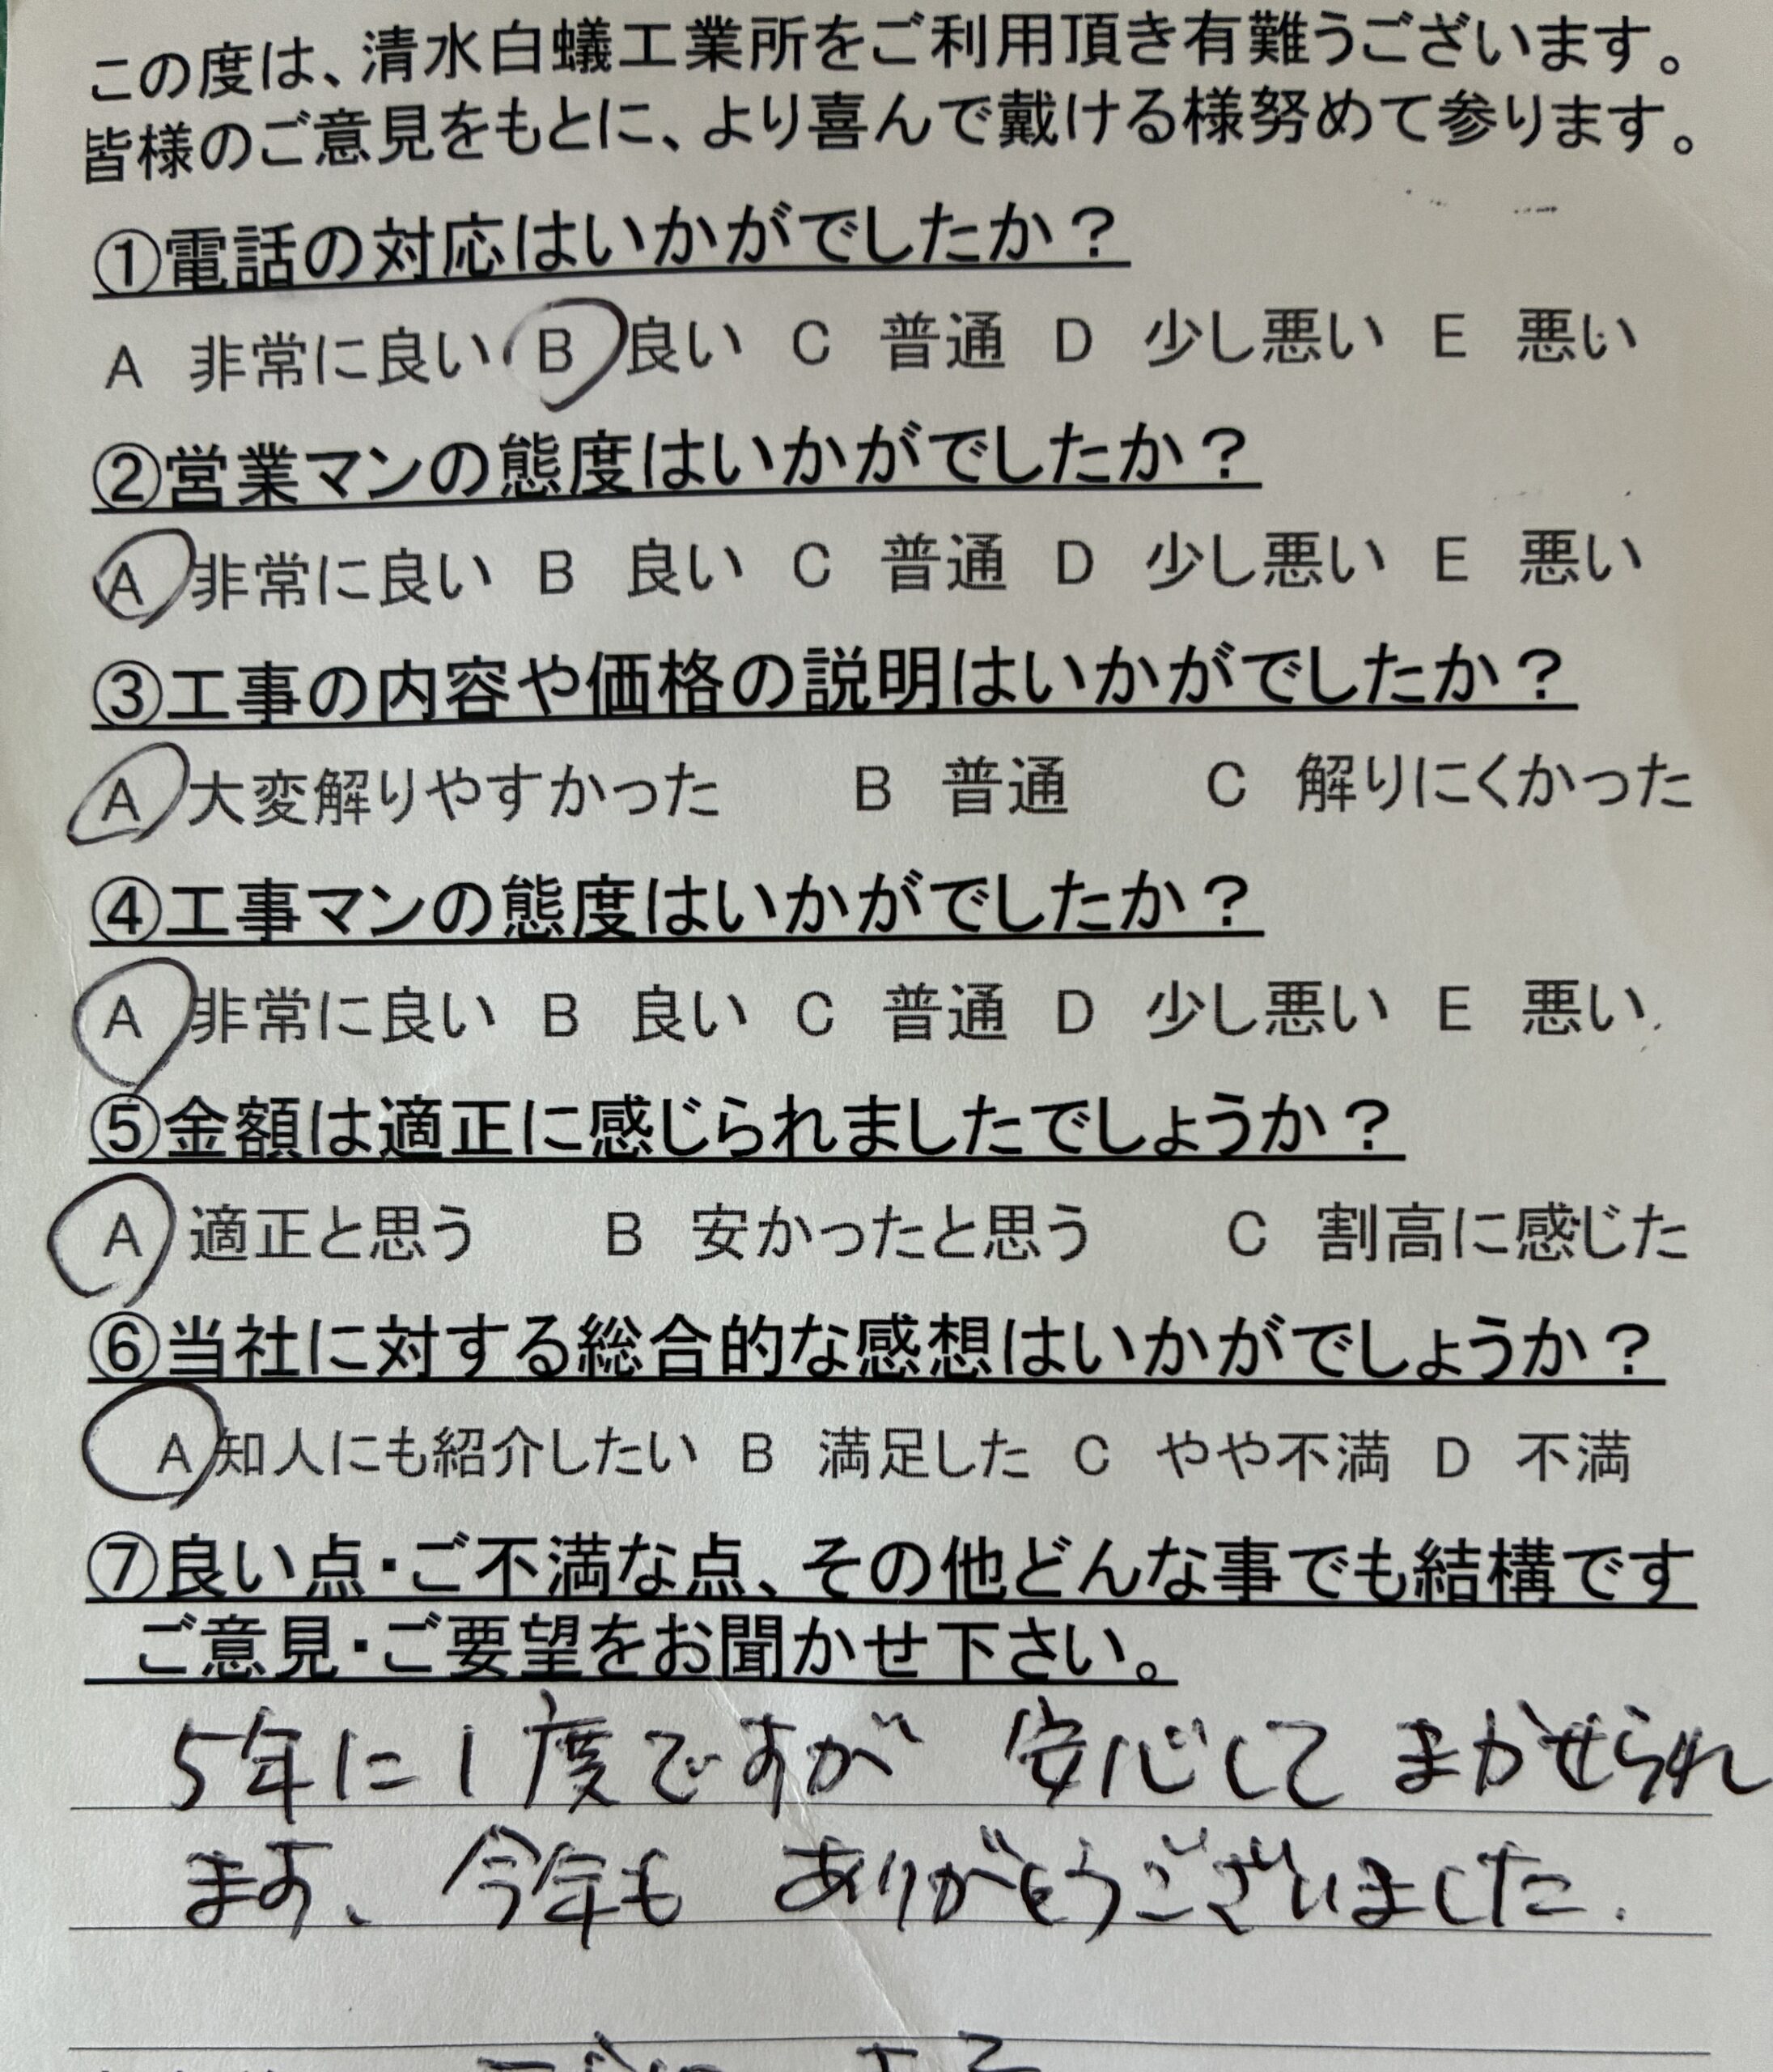 この度は、清水白蟻工業所をご利用頂き有難うございます。
皆様のご意見をもとに、より喜んで戴ける様努めて参ります。
①電話の対応はいかがでしたか？
A 非常に良い B 良い C 普通 D 少し悪い E 悪い
②営業マンの態度はいかがでしたか？
A 非常に良い B 良い C 普通 D 少し悪い E 悪い
③工事の内容や価格の説明はいかがでしたか？
A 大変解りやすかった B 普通 C 解りにくかった
④工事マンの態度はいかがでしたか？
A 非常に良い B 良い C 普通 D 少し悪い E 悪い
⑤金額は適正に感じられましたでしょうか？
A 適正と思う B 安かったと思う C 割高に感じた
⑥当社に対する総合的な感想はいかがでしょうか？
A 知人にも紹介したい B 満足した C やや不満 D 不満
⑦良い点・ご不満な点、その他どんな事でも結構です
ご意見・ご要望をお聞かせ下さい。
5年に1度ですが 安心して まかせられ
ます、今年も ありがとうございました.